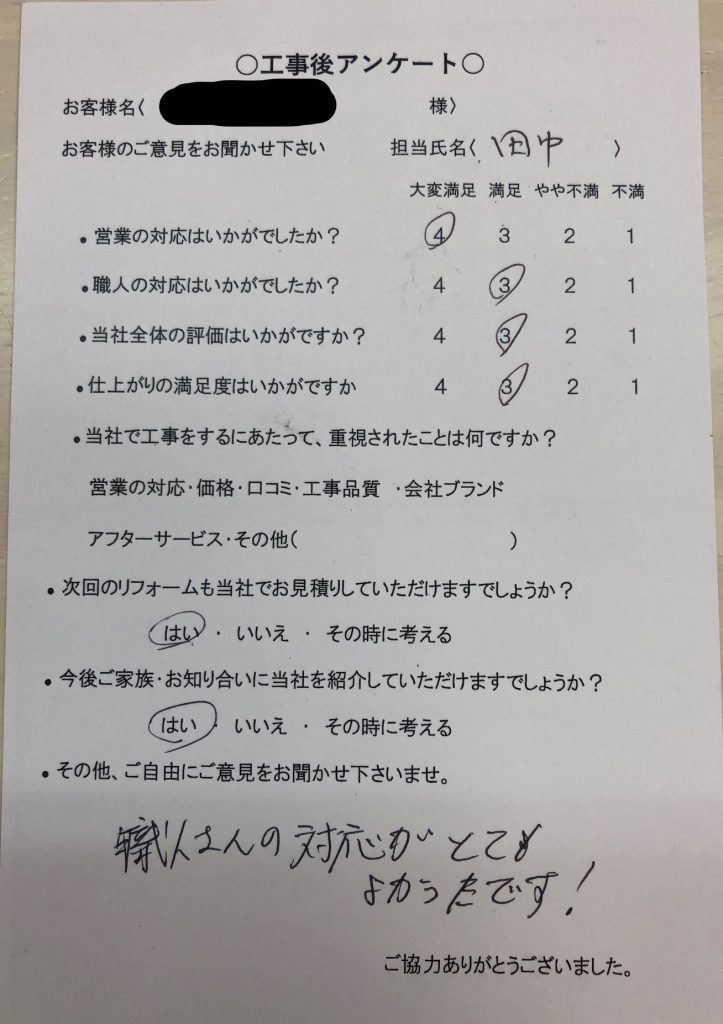 ○工事後アンケート○
お客様名〈 様〉
お客様のご意見をお聞かせ下さい 担当氏名〈 田中 〉
大変満足 満足 やや不満 不満
・営業の対応はいかがでしたか？ 4 3 2 1
・職人の対応はいかがでしたか？ 4 3 2 1
・当社全体の評価はいかがですか？ 4 3 2 1
・仕上がりの満足度はいかがですか 4 3 2 1
・当社で工事をするにあたって、重視されたことは何ですか？
営業の対応・価格・口コミ・工事品質 ・会社ブランド
アフターサービス・その他( )
・次回のリフォームも当社でお見積りしていただけますでしょうか？
はい ・ いいえ ・ その時に考える
・今後ご家族・お知り合いに当社を紹介していただけますでしょうか？
はい ・ いいえ ・ その時に考える
・その他、ご自由にご意見をお聞かせ下さいませ。
職人さんの対応がとても
よかったです！
ご協力ありがとうございました。